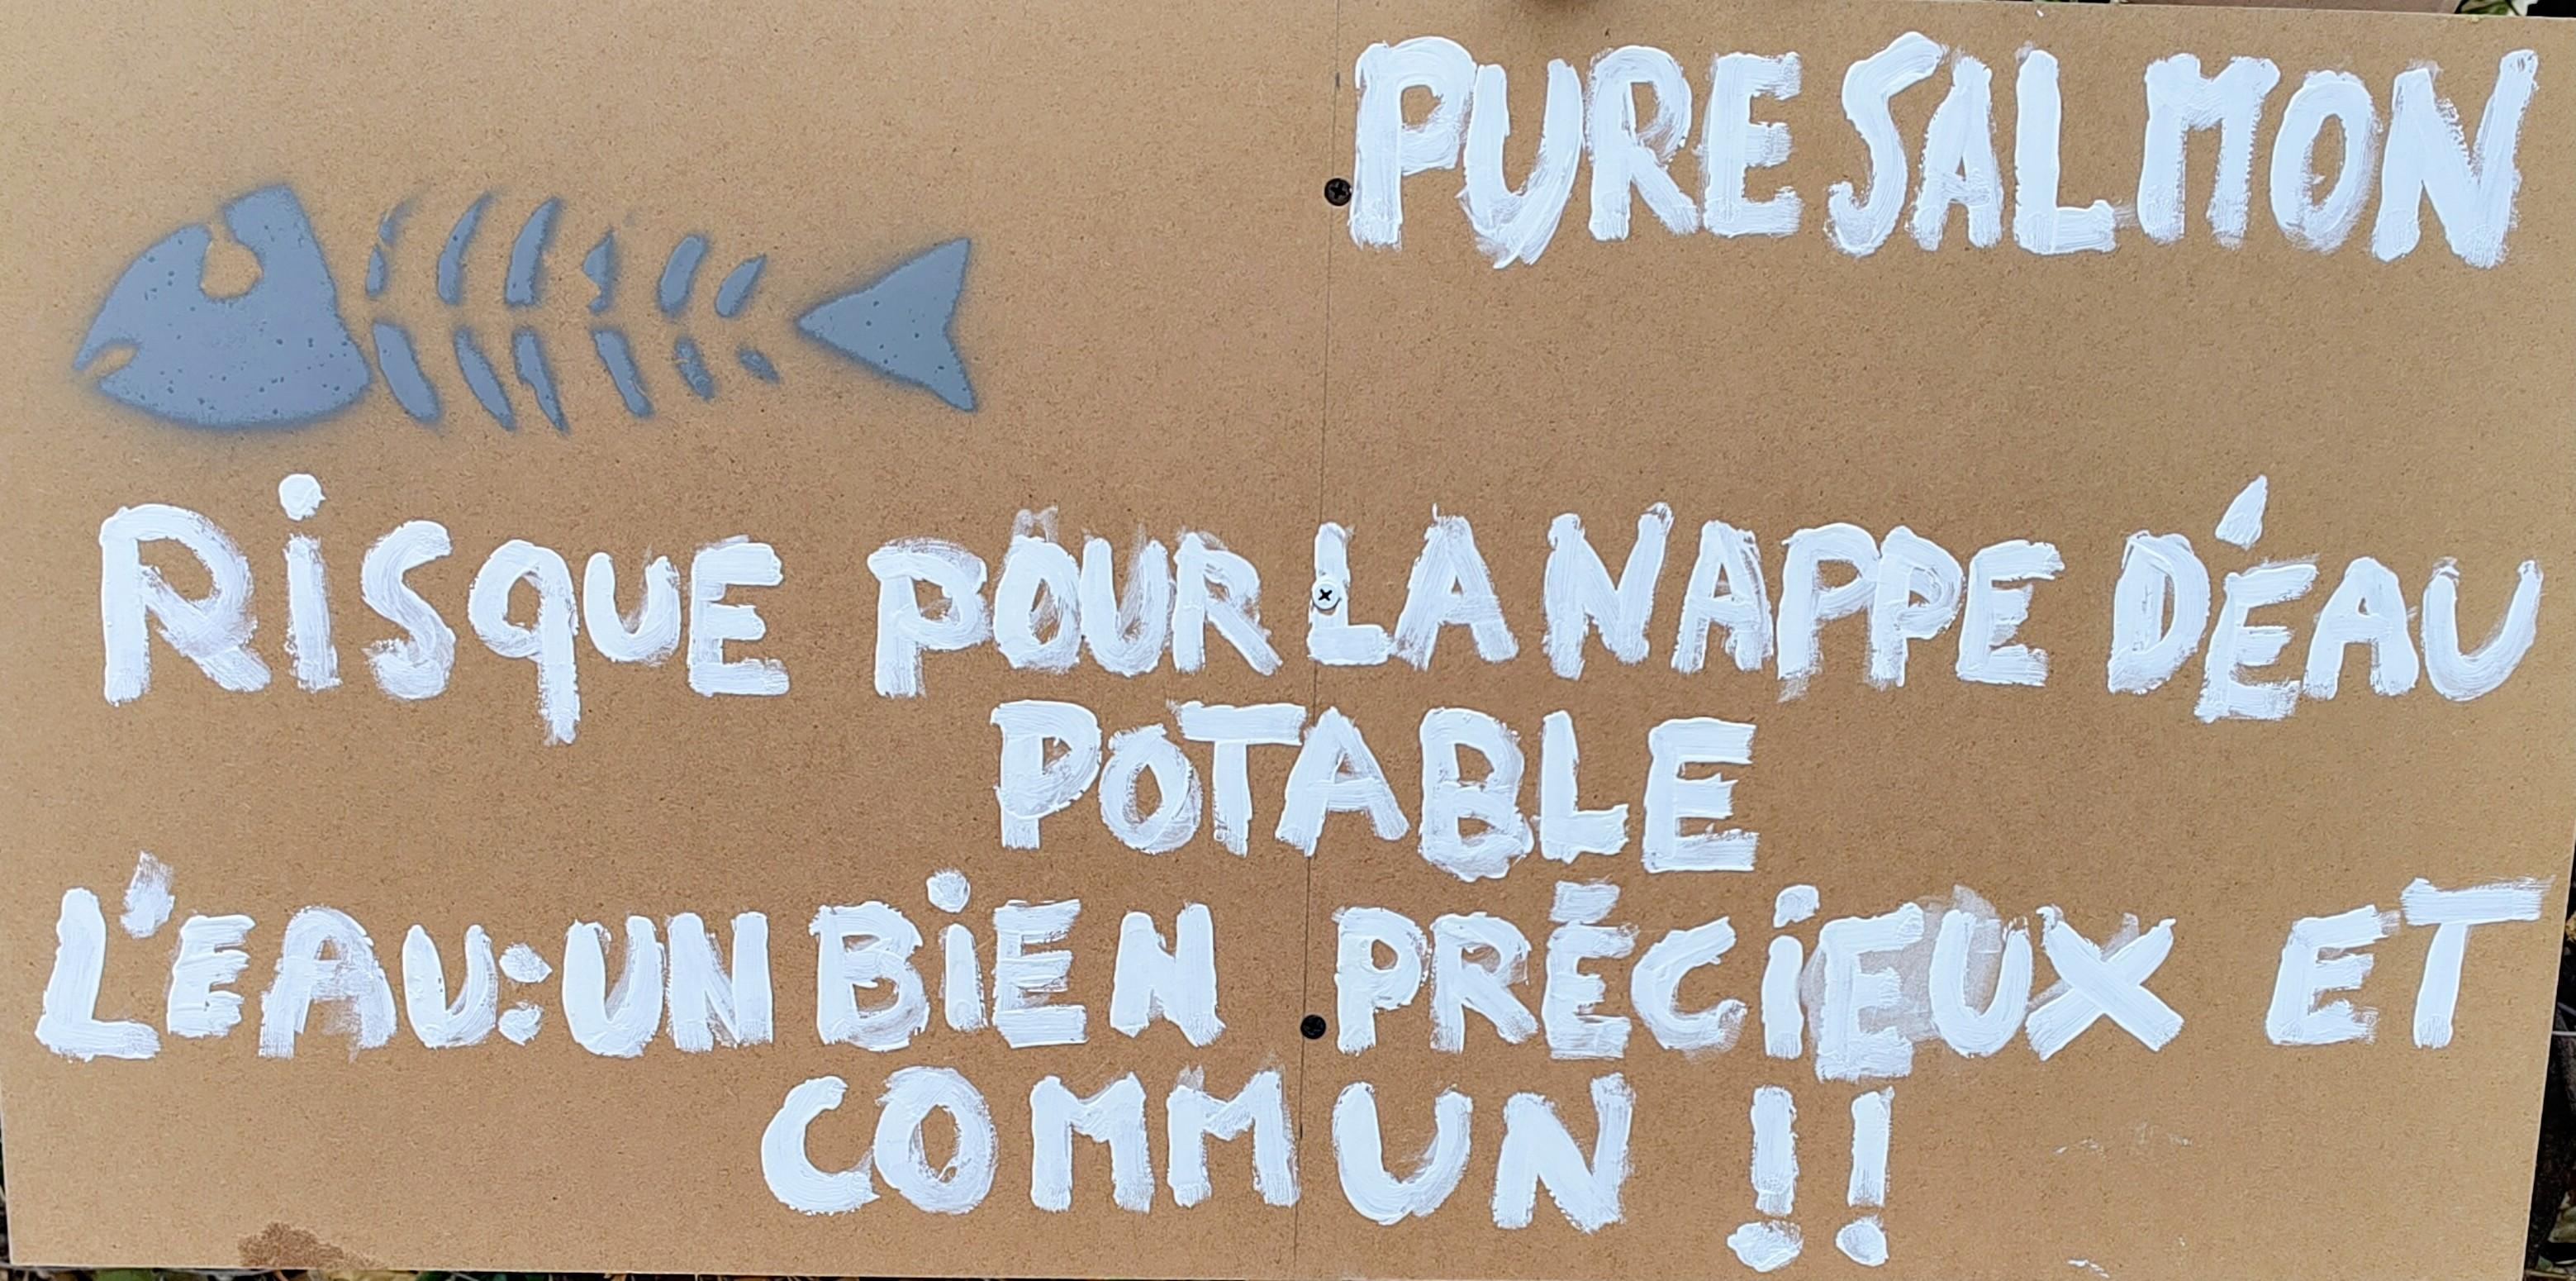 PURE SALMON
RiSqUE POUR LA NAPPE D'EAU
POTABLE
L'EAU: UN BiEN PRÉCiEUX ET
COMMUN !!